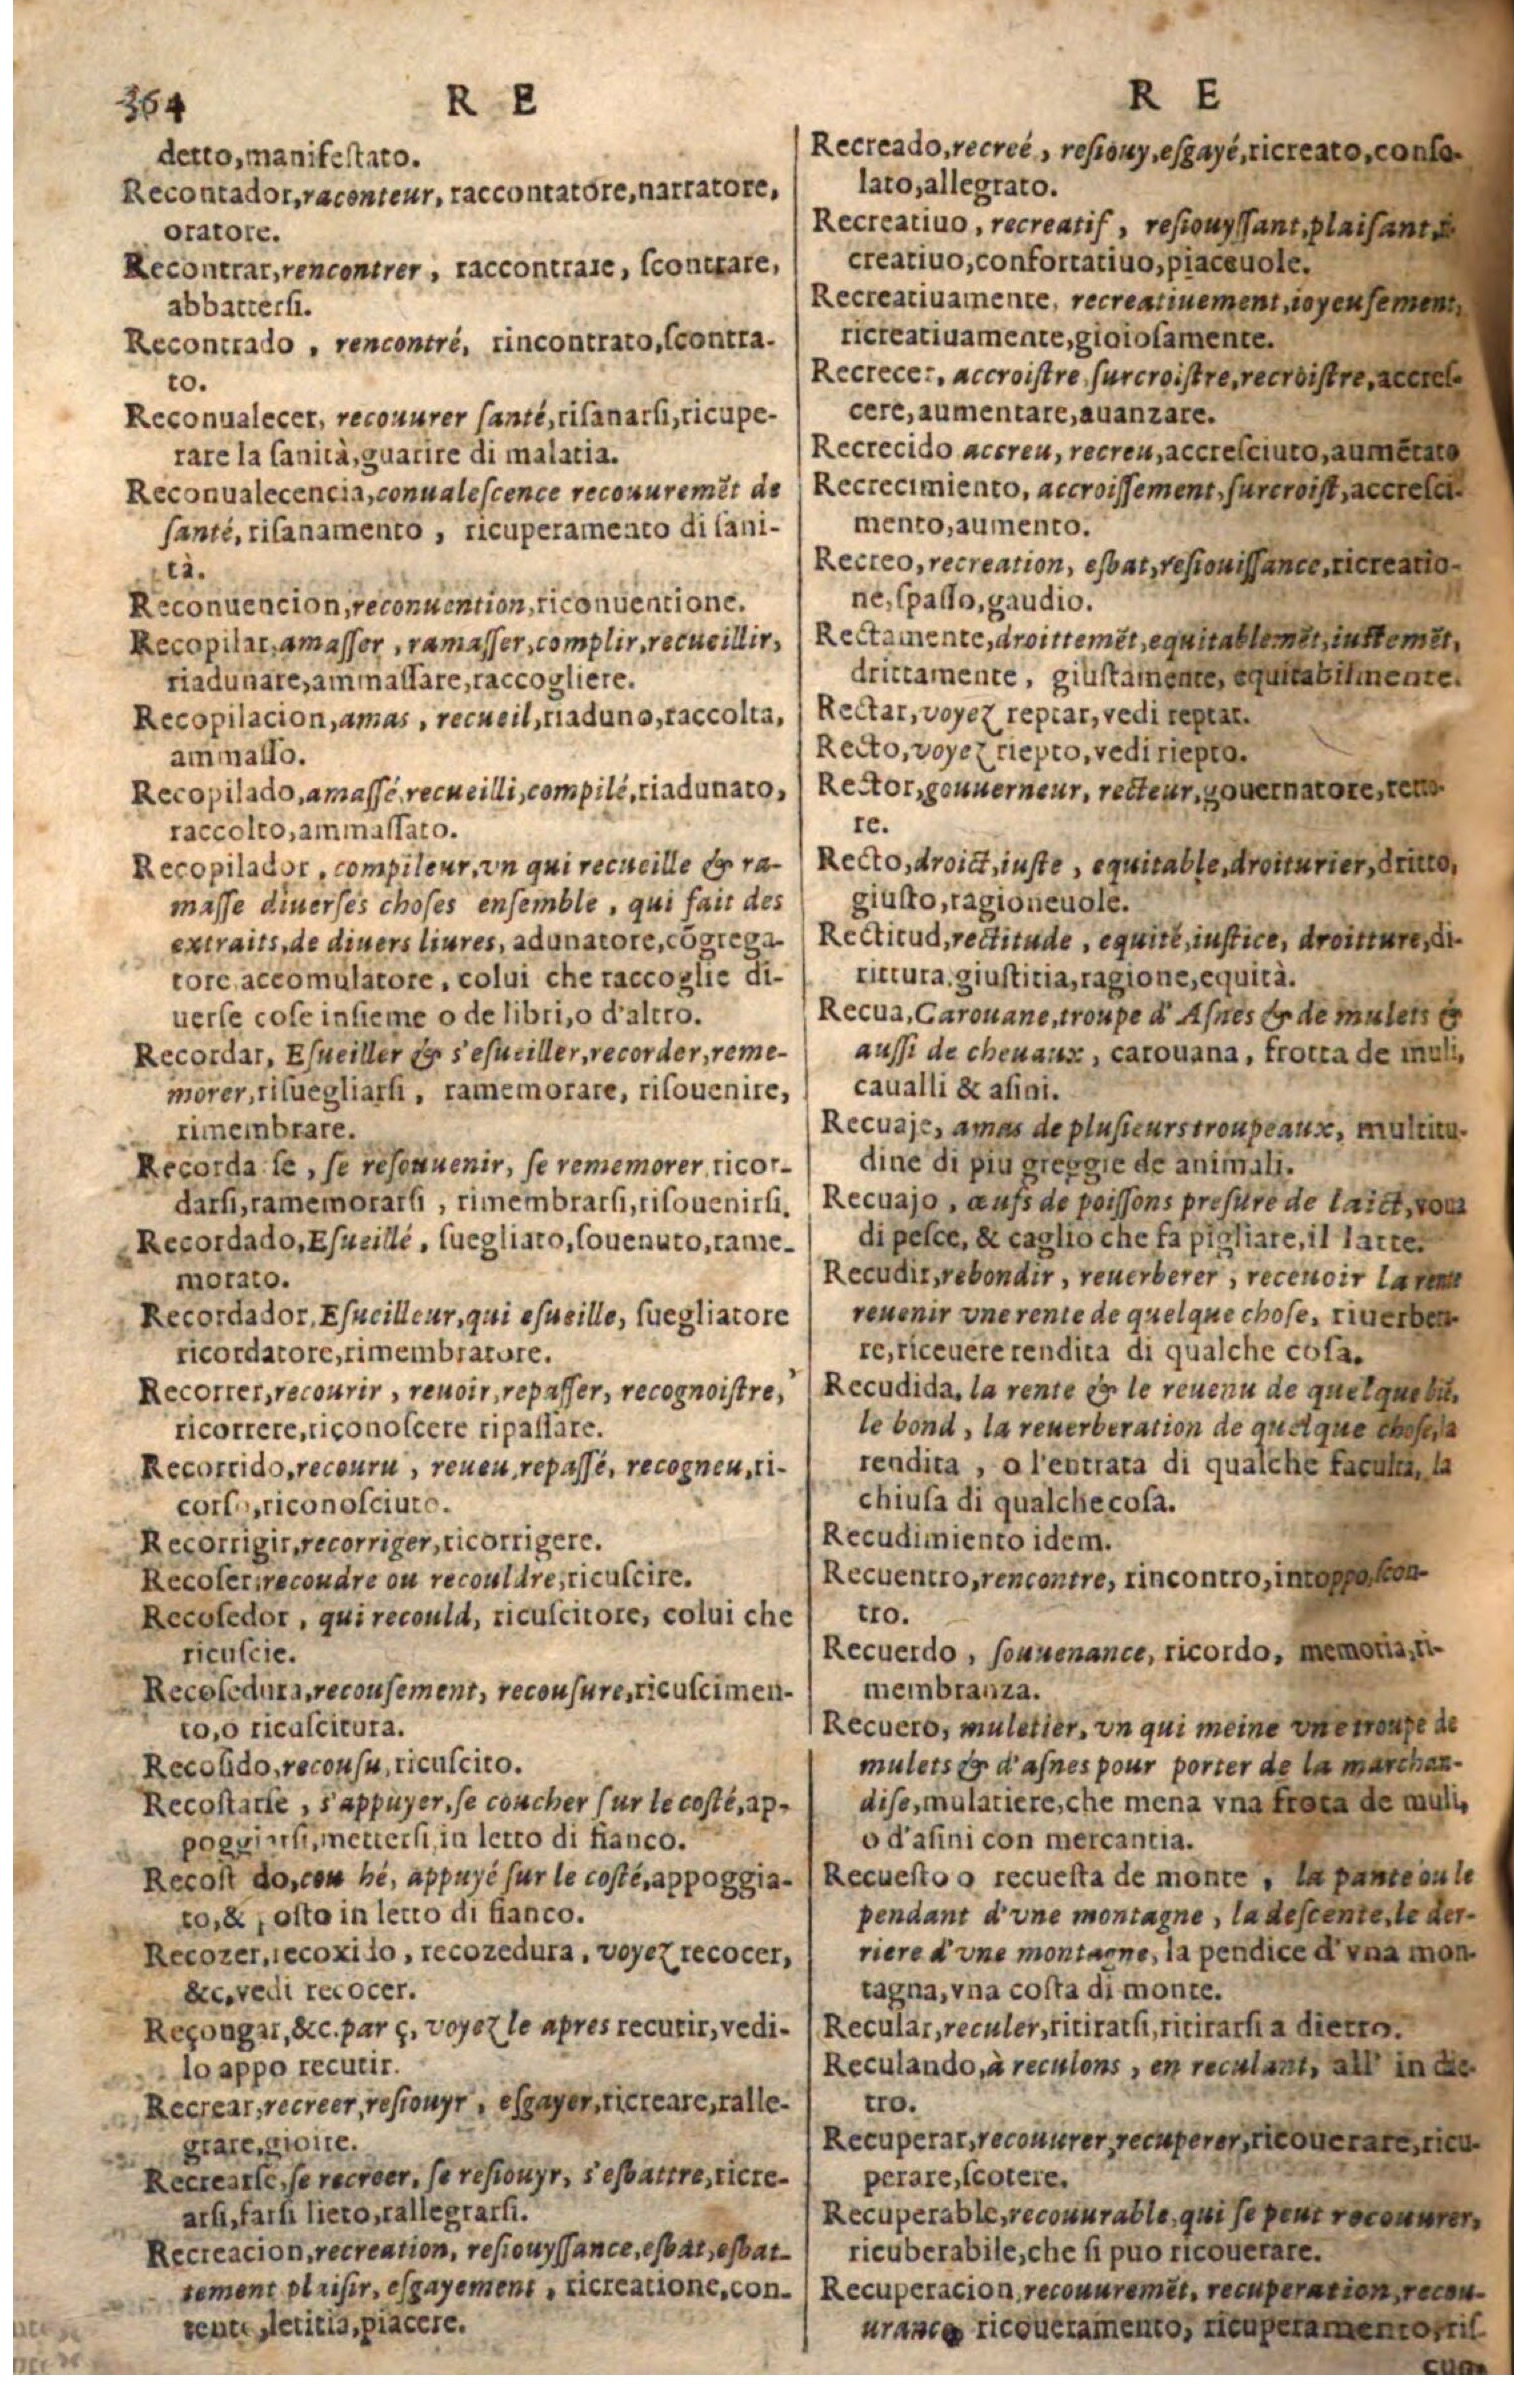 364
R E
detto,manifeſtato.
Recontador,raconteur, raccontatore,narratore,
oratore.
Recontrar,rencontrer, raccontrare, ſcontrare,
abbatterſi.
Recontrado , rencontré, rincontrato,ſcontra-
to.
Reconualecer, recouurer ſanté,riſanarſi,ricupe-
rare la ſanità,guarire di malatia.
Reconualecencia,conualeſcence recouuremēt de
ſanté, riſanamento , ricuperamento di ſani-
tà.
Reconuencion,reconuention,riconuentione.
Recopilar,amaſſer , ramaſſer,complir,recueillir,
riadunare,ammaſſare,raccogliere.
Recopilacion,amas , recueil,riaduno,raccolta,
ammaſſo.
Recopilado,amaſſé,recueilli,compilé,riadunato,
raccolto,ammaſſato.
Recopilador , compileur,vn qui recueille & ra-
maſſe diuerſes choſes enſemble , qui fait des
extraits,de diuers liures, adunatore,cōgrega-
tore,accomulatore , colui che raccoglie di-
uerſe coſe inſieme o de libri,o d'altro.
Recordar, Eſueiller & s'eſueiller,recorder,reme-
morer,riſuegliarſi , ramemorare, riſouenire,
rimembrare.
Recorda ſe , ſe reſouuenir, ſe rememorer,ricor-
darſi,ramemorarſi , rimembrarſi,riſouenirſi.
Recordado,Eſueillé , ſuegliato,ſouenuto,rame-
morato.
Recordador,Eſueilleur,qui eſueille, ſuegliatore
ricordatore,rimembratore.
Recorrer,recourir , reuoir,repaſſer, recognoiſtre,
ricorrere,riconoſcere ripaſſare.
Recorrido,recouru , reueu,repaſſé, recogneu,ri-
corſo,riconoſciuto.
Recorrigir,recorriger,ricorrigere.
Recoſer,recoudre ou recouldre,ricuſcire.
Recoſedor , qui recould, ricuſcitore, colui che
ricuſcie.
Recoſedura,recouſement, recouſure,ricuſcimen-
to,o ricuſcitura.
Recoſido,recouſu,ricuſcito.
Recoſtarſe , s'appuyer,ſe coucher ſur le coſté,ap-
poggiarſi,metterſi,in letto di fianco.
Recoſt do,cou hé, appuyé ſur le coſté,appoggia-
to,& , oſto in letto di fianco.
Recozer,recoxido , recozedura , voyez recocer,
&c.vedi recocer.
Reçongar,&c.par ç, voyez le apres recutir,vedi-
lo appo recutir.
Recrear,recreer,reſiouyr , eſgayer,ricreare,ralle-
grare,gioire.
Recrearſe,ſe recreer, ſe reſiouyr, s'eſbattre,ricre-
arſi,farſi lieto,rallegrarſi.
Recreacion,recreation, reſiouyſſance,eſbat,eſbat-
tement plaiſir, eſgayement , ricreatione,con-
tento,letitia,piacere.
R E
Recreado,recreé , reſiouy,eſgayé,ricreato,conſo-
lato,allegrato.
Recreatiuo , recreatif , reſiouyſſant,plaiſant,
creatiuo,confortatiuo,piaceuole.
Recreatiuamente, recreatiuement,ioyeuſement,
ricreatiuamente,gioioſamente.
Recrecer, accroiſtre,ſurcroiſtre,recroiſtre,accreſ-
cere,aumentare,auanzare.
Recrecido accreu, recreu,accreſciuto,aumētato
Recrecimiento, accroiſſement,ſurcroiſt,accreſci-
mento,aumento.
Recreo,recreation, eſbat,reſiouiſſance,ricreatio-
ne,ſpaſſo,gaudio.
Rectamente,droittemēt,equitablemēt,iuſtemēt,
drittamente, giuſtamente, equitabilmente.
Rectar,voyez reptar,vedi reptar.
Recto,voyez riepto,vedi riepto.
Rector,gouuerneur, recteur,gouernatore,retto-
re.
Recto,droict,iuſte , equitable,droiturier,dritto,
giuſto,ragioneuole.
Rectitud,rectitude , equité,iuſtice, droitture,di-
rittura,giuſtitia,ragione,equità.
Recua,Carouane,troupe d'Aſnes & de mulets &
auſſi de cheuaux , carouana, frotta de muli,
caualli & aſini.
Recuaje, amas de pluſieurs troupeaux, multitu-
dine di piu greggie de animali.
Recuajo , œufs de poiſſons preſure de laict, voua
di peſce, & caglio che fa pigliare,il latte.
Recudir,rebondir , reuerberer , receuoir la rente
reuenir vne rente de quelque choſe, riuerbera-
re,riceuere rendita di qualche coſa.
Recudida, la rente & le reuenu de quelque biē,
le bond , la reuerberation de quelque choſe,la
rendita , o l'entrata di qualche faculta, la
chiuſa di qualche coſa.
Recudimiento idem.
Recuentro,rencontre, rincontro,intoppo,ſcon-
tro.
Recuerdo , ſouuenance, ricordo, memoria,ri-
membranza.
Recuero, muletier, vn qui meine vne troupe de
mulets & d'aſnes pour porter de la marchan-
diſe,mulatiere,che mena vna frota de muli,
o d'aſini con mercantia.
Recueſto o recueſta de monte , la pante ou le
pendant d'vne montagne , la deſcente,le der-
riere d'vne montagne, la pendice d'vna mon-
tagna,vna coſta di monte.
Recular,reculer,ritirarſi,ritirarſi a dietro.
Reculando,à reculons , en reculant, all' in die-
tro.
Recuperar,recouurer,recuperer,ricouerare,ricu-
perare,ſcotere.
Recuperable,recouurable,qui ſe peut recouurer,
ricuberabile,che ſi puo ricouerare.
Recuperacion,recouuremēt, recuperation,recou-
urance ricoueramento, ricuperamento,riſ-
cuo-